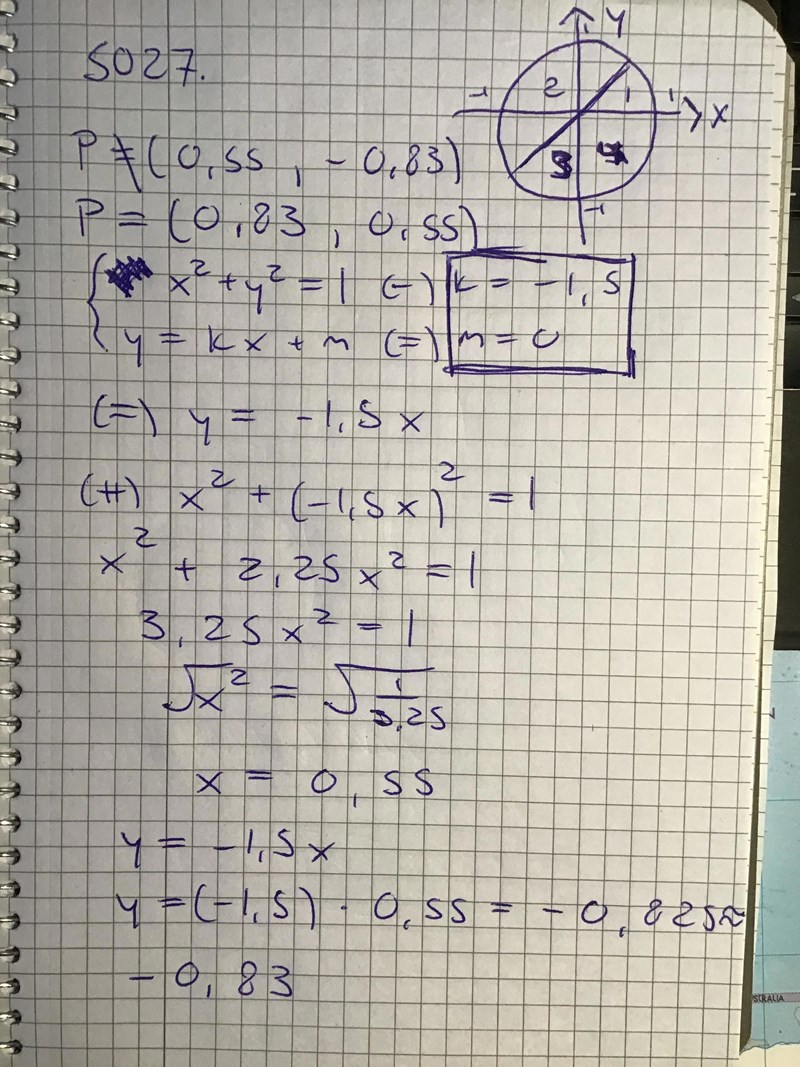 5027.
y
-1 2 1 1 x
3 4
-1
P ≠ (0,55 , -0,83)
P = (0,83 , 0,55)
{ x² + y² = 1 (-) k = -1,5
y = kx + m (=) m = 0
(=) y = -1,5x
(#) x² + (-1,5x)² = 1
x² + 2,25x² = 1
3,25x² = 1
√x² = √1/3,25
x = 0,55
y = -1,5x
y = (-1,5) · 0,55 = -0,825≈
-0,83
STRALIA